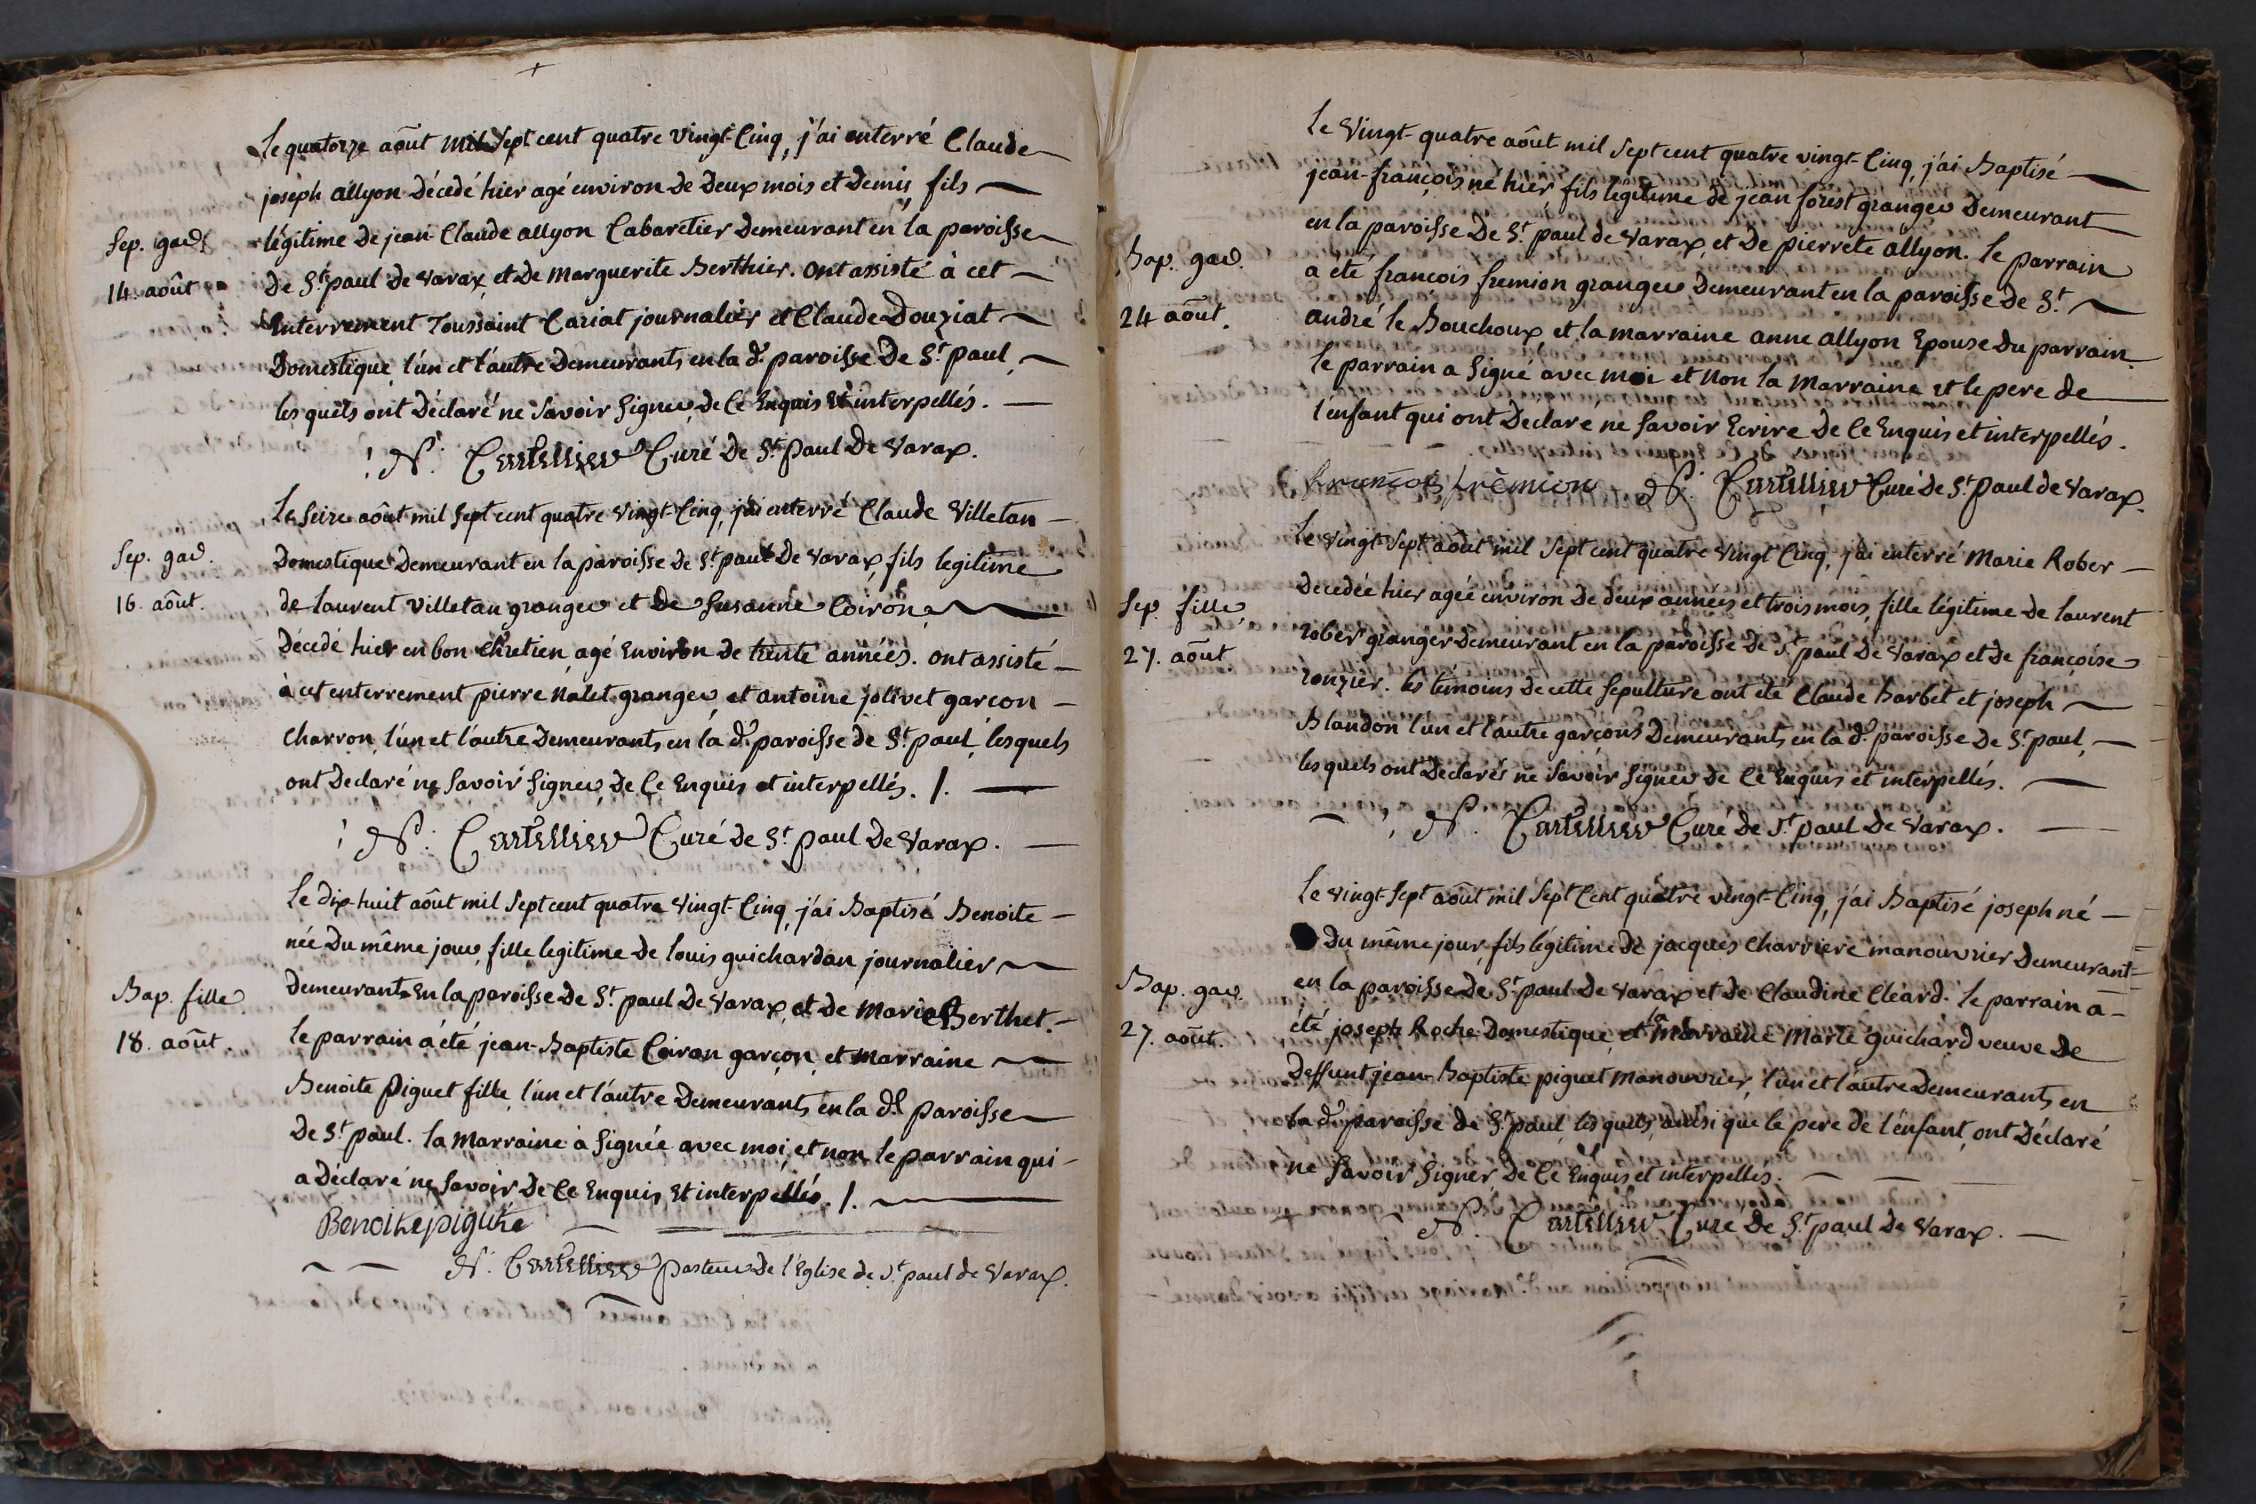 Le quatorze aôut mil sept cent quatre vingt-Cinq, j'ai enterré Claude
joseph allyon Décedé hier agé environ de Deux mois et Demis, fils
Sep. gar.
légitime De jean-Claude allyon Cabaretier Demeurant en la paroisse
14. aôut
De St. paul de varax et de marguerite Berthier. ont assisté à cet
Enterrement Toussaint Cariat journalier et Claude Douziat
Domestique, l'un et l'autre Demeurants en la de. paroisse De St. paul,
les quels ont Déclaré ne Savoir Signer, de Ce Enquis Et interpellés.
N. Cartellier Curé de St. paul De Varax.
Le Seize aôut mil Sept cent quatre vingt Cinq, j'ai enterré Claude Villetan
Sep. gar.
Domestique Demeurant en la paroisse de St. paul De varax, fils legitime
16. aôut.
de laurent villetan granger et De Susanne Coiron,
Décedé hier en bon Chretien, agé Environ De trente années. ont assisté
à cet enterrement pierre nalet granger, et antoine jolivet garçon
Charron, l'un et l'autre Demeurants en la de. paroisse de St. paul, lesquels
ont Declaré ne Savoir Signer, De Ce Enquis et interpellés. /.
N. Cartellier Curé de St. paul De Varax.
Le dix-huit aôut mil Sept cent quatre vingt-Cinq, j'ai Baptisé Benoite
née Du même jour, fille legitime de louis guichardan journalier
Bap. fille
demeurants En la paroisse De St. paul De Varax, et de Marie Berthet.
18. aôut.
le parrain à été jean-Baptiste Coiron garçon, et marraine
Benoite Piguet fille, l'un et l'autre Demeurants en la de. paroisse
De St. paul. la Marraine à Signée avec moi, et non le parrain qui
a Déclaré ne Savoir De Ce Enquis Et interpellés. /.
Benoite piguite
N. Cartellier pasteur De l'Eglise de St. paul de Varax.
Le Vingt-quatre aôut mil Sept cent quatre vingt-Cinq, j'ai Baptisé
jean-françois né hier, fils legitime de jean forest granger Demeurant
en la paroisse De St. paul de Varax, et De pierrete allyon. le parrain
Bap. gar.
a été françois fremion granger Demeurant en la paroisse de St.
24 aôut.
andré le Bouchoux, et la marraine anne allyon Epouse Du parrain.
le parrain a Signé avec moi et Non la Marraine et le pere de
l'enfant qui ont Declaré ne Savoir Ecrire de Ce Enquis et interpellés.
François frèmion N. Cartellier Curé de St. paul de Varax.
Le vingt-Sept aôut mil Sept cent quatre vingt Cinq, j'ai enterré Marie Rober
Decedée hier agée environ De deux années et trois mois, fille légitime de laurent
Sep. fille
rober granger Demeurant en la paroisse De St. paul De Varax et de françoise
27. aôut
ronzier. les temoins de cette Sepulture ont été Claude Barbet et joseph
Blandon l'un et l'autre garçons Demeurants en la de. paroisse De St. paul,
les quels ont Declarés ne Savoir Signer de Ce Enquis et interpellés.
N. Cartellier Curé de St. paul De Varax.
Le vingt-Sept aôut mil Sept Cent quatre vingt-Cinq, j'ai Baptisé joseph né
Du même jour, fils legitime De jacques Charriere manouvrier Demeurant
Bap. gar.
en la paroisse De St. paul De Varax et de Claudine Cléard. le parrain à
27. aôut.
été joseph Roche Domestique, et la Marraine Marie guichard veuve De
Deffunt jean-Baptiste piguet Manouvrier, l'un et l'autre Demeurants en
la de. paroisse de St. paul, les quels, aussi que le pere de l'enfant, ont Déclaré
ne Savoir Signer De Ce Enquis et interpellés.
N. Cartellier Cure De St. paul De Varax.